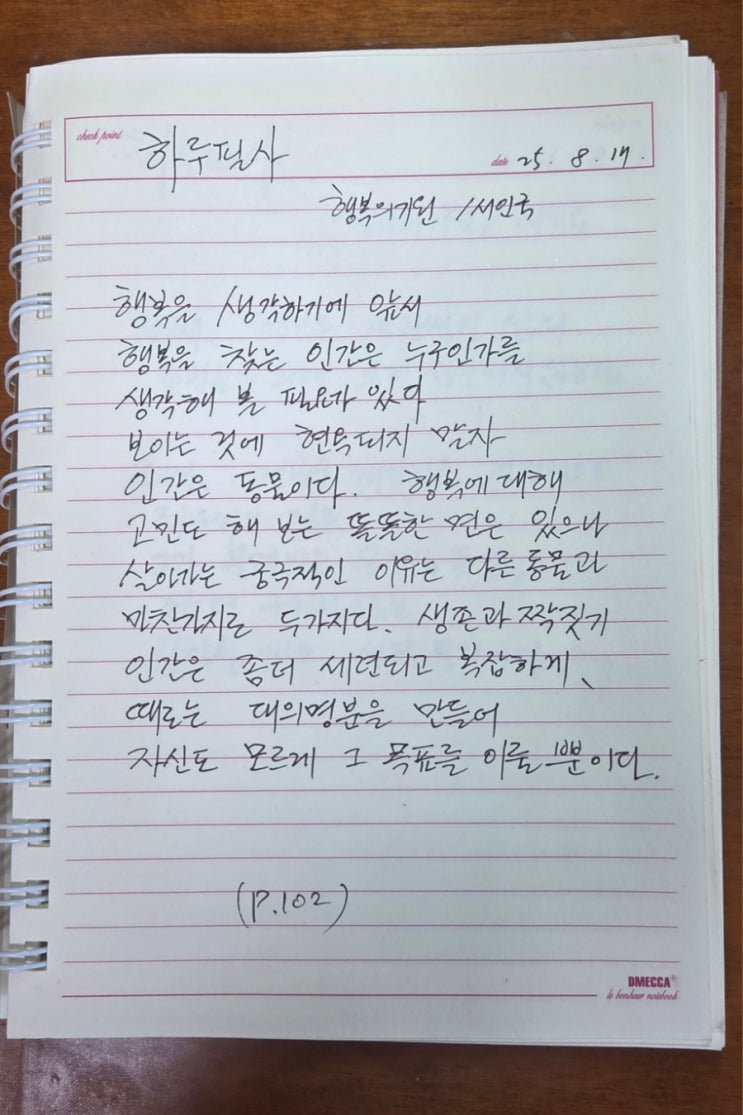 check point
하루필사
date 25. 8. 17.
행복의기원 /서인국
행복을 생각하기에 앞서
행복을 찾는 인간은 누구인가를
생각해 볼 필요가 있다
보이는 것에 현혹되지 말자
인간은 동물이다. 행복에 대해
고민도 해 보는 똘똘한 면은 있으나
살아가는 궁극적인 이유는 다른 동물과
마찬가지로 두가지다. 생존과 짝짓기
인간은 좀더 세련되고 복잡하게、
때로는 대의명분을 만들어
자신도 모르게 그 목표를 이룰 뿐이다.
(P.102)
DMECCA®
le bonheur notebook